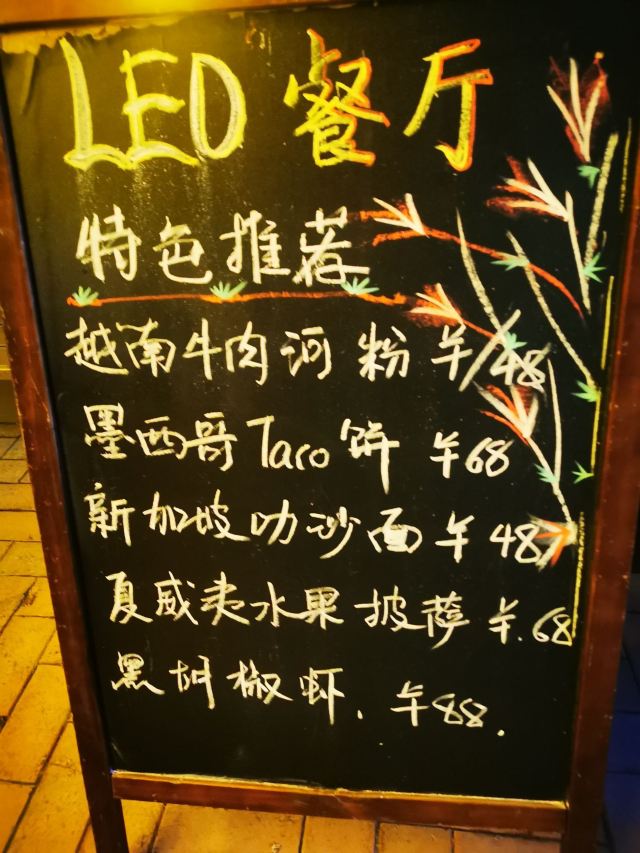 LEO 餐厅
特色推荐
越南牛肉河粉 ¥/48
墨西哥Taco饼 ¥68
新加坡叻沙面 ¥48/
夏威夷水果披萨 ¥.68
黑胡椒虾. ¥88.